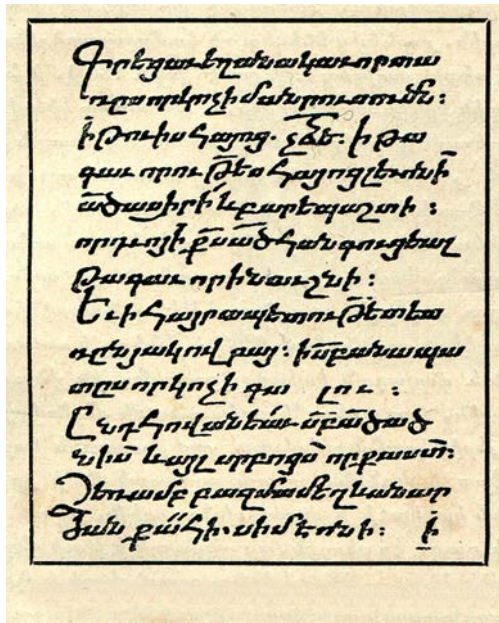 Գրեցաւ եղանակաւորս
որ կոչի մանրուսումն։
ի թուիս հայոց. ի թա
գաւորութե հայոց լեւոնի
ածասիրի և բարեպաշտի ։
որդւոյ ի քս ած հանգուցեալ
թագաւորին աւշնի ։
Եւ ի հայրապետութե տեառ
յակովբայ.
որ կոչի գա լու ։
Ընդ հովանեաւ սբ ածած
նիս և այլ սրբոցս որ աստ։
Ձեռամբ բազմամեղ և անար
ժան քահի. սիմեոնի։ ի